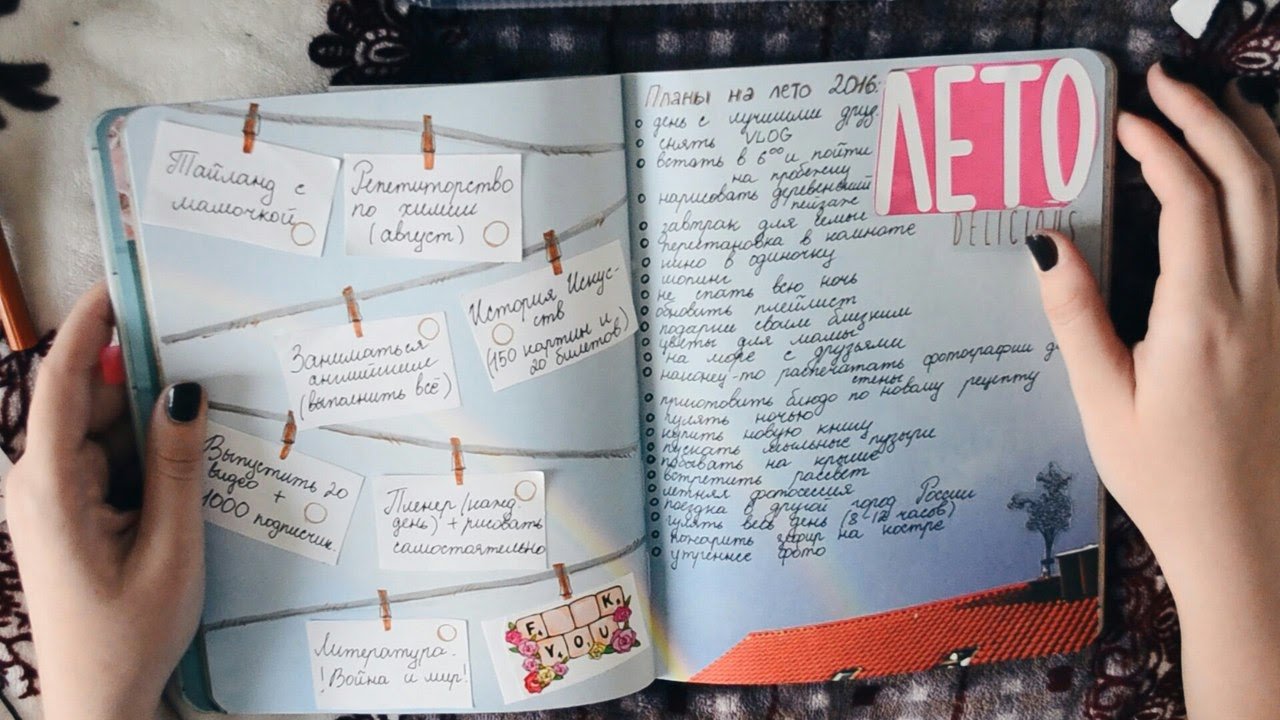 Тайланд с
мамочкой
Репетиторство
по химии
(август)
История Искус-
ств
(150 картин и
20 билетов)
Заниматься
английским
(выполнить всё)
Выпустить 20
видео +
1000 подписчик.
Пленер (кажд.
день) + рисовать
самостоятельно
Литература.
! Война и мир!
F K
YOU
Планы на лето 2016:
день с лучшими друз.
снять VLOG
встать в 6⁰⁰ и пойти
на пробежку
нарисовать деревенский
пейзаж
завтрак для семьи
перестановка в комнате
кино в одиночку
шопинг
не спать всю ночь
обновить плейлист
подарки своим близким
цветы для мамы
на море с друзьями
наконец-то распечатать фотографии для
стены
приготовить блюдо по новому рецепту
гулять ночью
купить новую книгу
пускать мыльные пузыри
побывать на крыше
встретить рассвет
летняя фотосессия
поездка в другой город России
гулять весь день (8-12 часов)
пожарить зефир на костре
утреннее фото
ЛЕТО
DELICIOUS